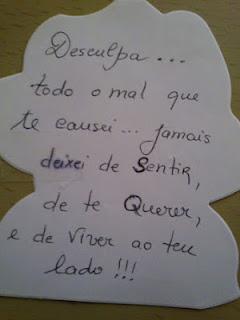 Desculpa...
todo o mal que
te causei... jamais
deixei de Sentir,
de te Querer,
e de Viver ao teu
lado!!!